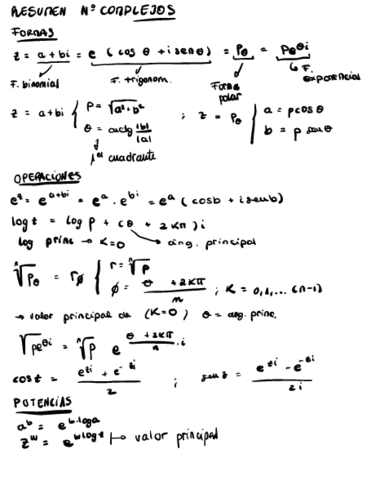 RESUMEN Nº COMPLEJOS
FORMAS
z = a + bi = e (cos θ + i sen θ) = ρθ = ρe^θi
F. binomial F. trigonom. Forma polar F. exponencial
z = a + bi { ρ = √(a² + b²) ; z = ρθ { a = ρ cos θ
θ = arctg |b|/|a| b = ρ sen θ
1er cuadrante
OPERACIONES
e^z = e^(a+bi) = e^a . e^bi = e^a (cos b + i sen b)
log z = log ρ + (θ + 2kπ) i
log princ → k=0 áng. principal
ⁿ√ρθ = rø { r = ⁿ√ρ
ø = (θ + 2kπ)/n ; k = 0,1,... (n-1)
→ valor principal da (k=0) θ = arg. princ.
ⁿ√ρe^θi = ⁿ√ρ e^((θ + 2kπ)/n . i)
cos z = (e^zi + e^-zi)/2 ; sen z = (e^zi - e^-zi)/2i
POTENCIAS
a^b = e^(b.log a)
z^w = e^(w log z) → valor principal